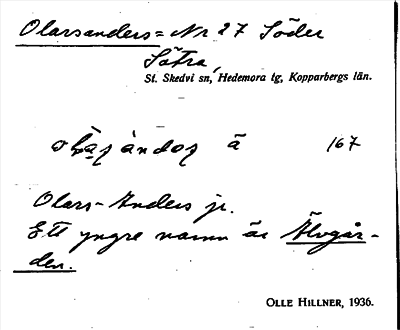 Olarsanders = Nr 27 Söder
Sätra,
St. Skedvi sn, Hedemora tg, Kopparbergs län.
ā 167
Olars-Anders jr.
Ett yngre namn är Älvgår-
den.
OLLE HILLNER, 1936.